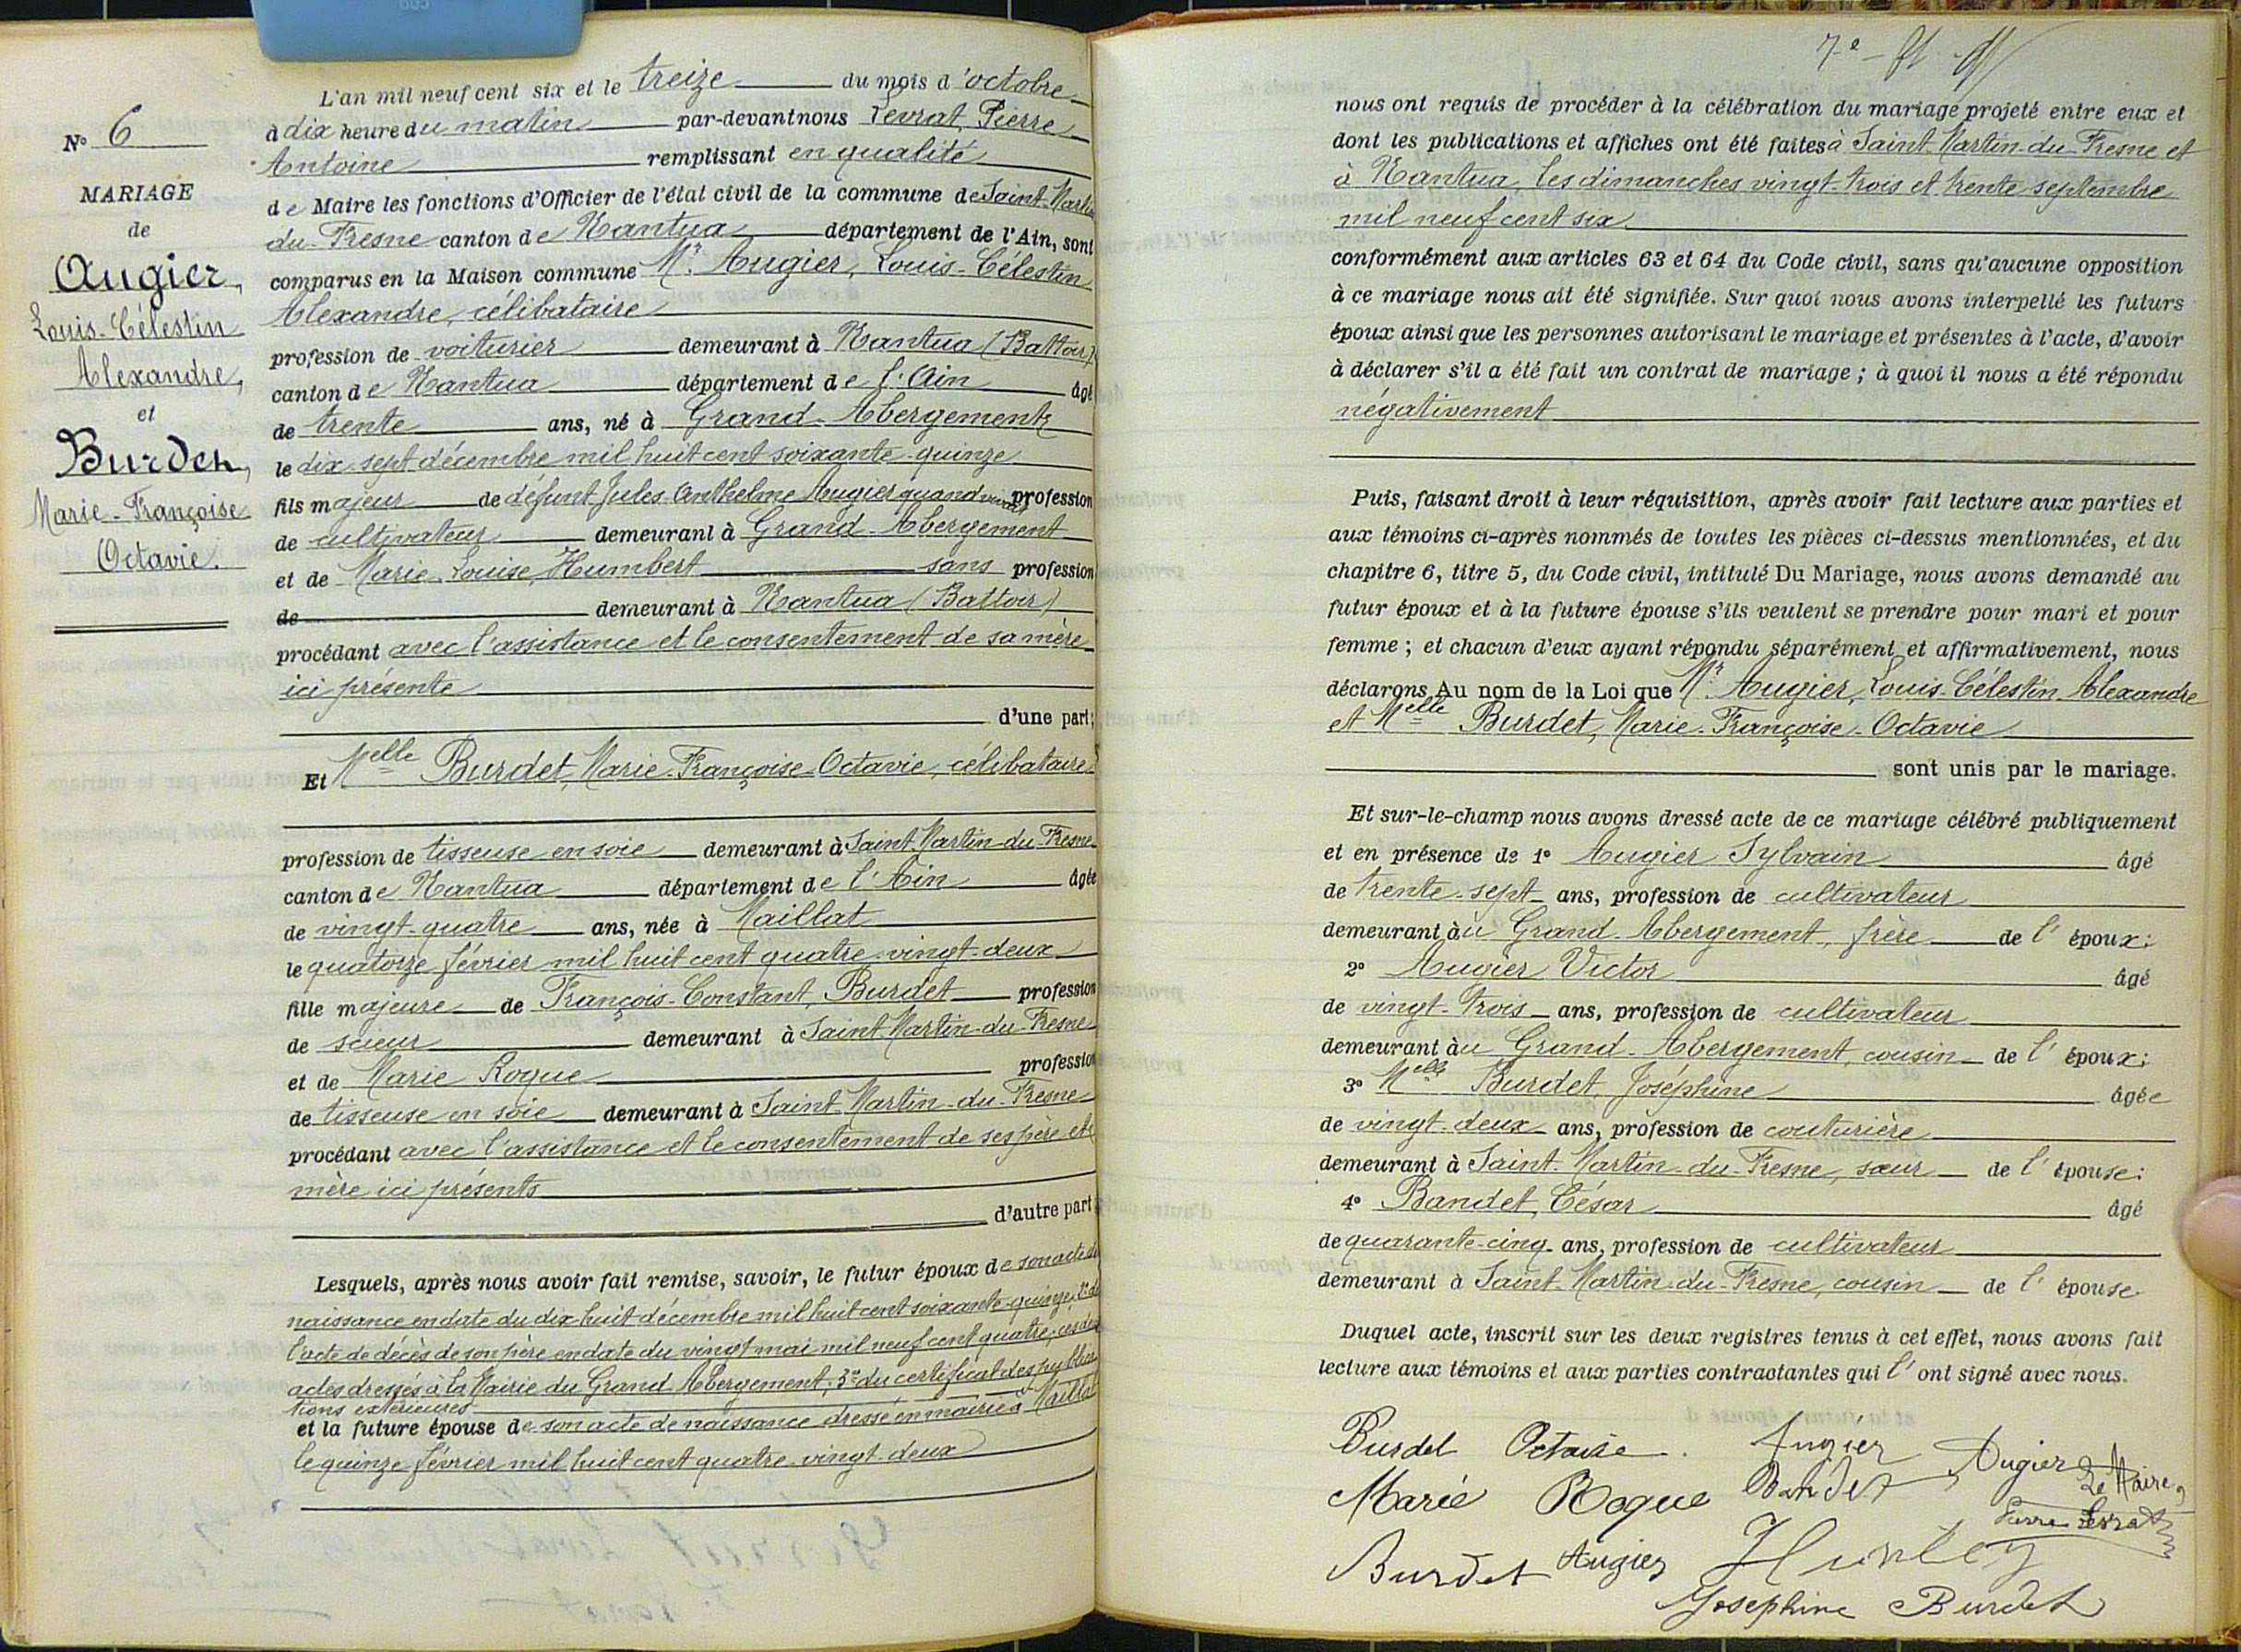 N° 6
MARIAGE
de
Augier,
Louis-Célestin
Alexandre,
et
Burdet,
Marie-Françoise
Octavie.
L'an mil neuf cent six et le treize du mois d'octobre
à dix heure du matin par-devant nous Levrat, Pierre
Antoine remplissant en qualité
de Maire les fonctions d'Officier de l'état civil de la commune de Saint-Martin
du-Fresne canton de Nantua département de l'Ain, sont
comparus en la Maison commune Mr. Augier, Louis-Célestin
Alexandre, célibataire
profession de voiturier demeurant à Nantua (Battoir)
canton de Nantua département de l'Ain âgé
de trente ans, né à Grand-Abergement
le dix-sept décembre mil huit cent soixante-quinze
fils majeur de défunt Jules Anthelme Augier quand vivait profession
de cultivateur demeurant à Grand-Abergement
et de Marie-Louise Humbert sans profession
de demeurant à Nantua (Battoir)
procédant avec l'assistance et le consentement de sa mère
ici présente
d'une part;
Et Melle Burdet, Marie-Françoise-Octavie, célibataire
profession de tisseuse en soie demeurant à Saint-Martin-du-Fresne
canton de Nantua département de l'Ain âgée
de vingt-quatre ans, née à Maillat
le quatorze février mil huit cent quatre-vingt-deux
fille majeure de François-Constant, Burdet profession
de scieur demeurant à Saint-Martin-du-Fresne
et de Marie Rogue profession
de tisseuse en soie demeurant à Saint-Martin-du-Fresne
procédant avec l'assistance et le consentement de ses père et
mère ici présents
d'autre part
Lesquels, après nous avoir fait remise, savoir, le futur époux de son acte de
naissance en date du dix huit décembre mil huit cent soixante-quinze, 2° de
l'acte de décès de son père en date du vingt mai mil neuf cent quatre, ces deux
actes dressés à la Mairie du Grand-Abergement; 3° du certificat des publica
tions extérieures
et la future épouse de son acte de naissance dressé en mairie à Maillat
le quinze février mil huit cent quatre-vingt-deux
7e ft
nous ont requis de procéder à la célébration du mariage projeté entre eux et
dont les publications et affiches ont été faites à Saint-Martin-du-Fresne et
à Nantua, les dimanches vingt-trois et trente septembre
mil neuf cent six
conformément aux articles 63 et 64 du Code civil, sans qu'aucune opposition
à ce mariage nous ait été signifiée. Sur quoi nous avons interpellé les futurs
époux ainsi que les personnes autorisant le mariage et présentes à l'acte, d'avoir
à déclarer s'il a été fait un contrat de mariage; à quoi il nous a été répondu
négativement
Puis, faisant droit à leur réquisition, après avoir fait lecture aux parties et
aux témoins ci-après nommés de toutes les pièces ci-dessus mentionnées, et du
chapitre 6, titre 5, du Code civil, intitulé Du Mariage, nous avons demandé au
futur époux et à la future épouse s'ils veulent se prendre pour mari et pour
femme; et chacun d'eux ayant répondu séparément et affirmativement, nous
déclarons Au nom de la Loi que Mr. Augier, Louis-Célestin Alexandre
et Melle Burdet, Marie-Françoise-Octavie
sont unis par le mariage.
Et sur-le-champ nous avons dressé acte de ce mariage célébré publiquement
et en présence de 1° Augier Sylvain âgé
de trente-sept ans, profession de cultivateur
demeurant àu Grand-Abergement, frère de l'époux;
2° Augier Victor âgé
de vingt-trois ans, profession de cultivateur
demeurant àu Grand-Abergement, cousin de l'époux;
3° Melle Burdet, Joséphine âgée
de vingt-deux ans, profession de couturière
demeurant à Saint-Martin-du-Fresne, sœur de l'épouse;
4° Bandet, César âgé
de quarante-cinq ans, profession de cultivateur
demeurant à Saint-Martin-du-Fresne, cousin de l'épouse
Duquel acte, inscrit sur les deux registres tenus à cet effet, nous avons fait
lecture aux témoins et aux parties contractantes qui l'ont signé avec nous.
Burdet Octavie. Augier Augier
Le Maire,
Marie Rogue Bandet
Pierre Levrat
Burdet Augier
Josephine Burdet